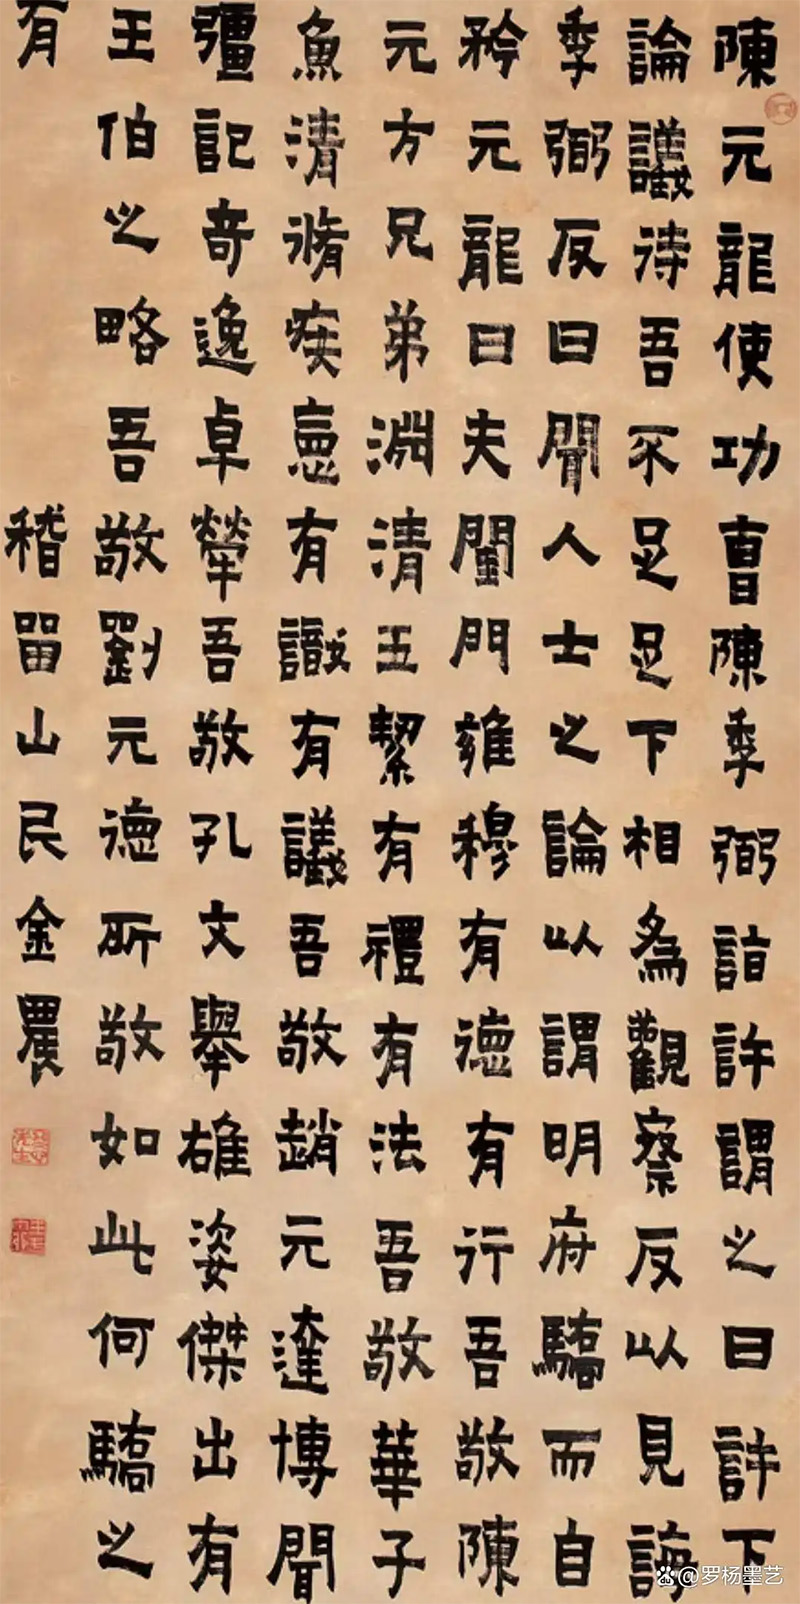 陳元龍使功曹陳季弼詣許謂之曰許下
論議待吾不足足下相為觀察反以見誨
季弼反曰聞人士之論以謂明府驕而自
矜元龍曰夫閨門雍穆有德有行吾敬陳
元方兄弟淵清玉絜有禮有法吾敬華子
魚清脩疾惡有識有議吾敬趙元達博聞
彊記奇逸卓犖吾敬孔文舉雄姿傑出有
王伯之略吾敬劉元德所敬如此何驕之
有
稽留山民金農
@罗杨墨艺